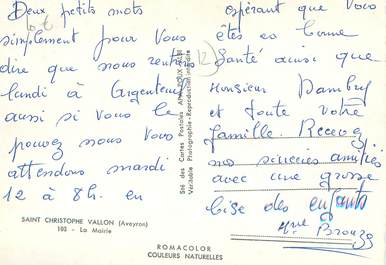 Deux petits mots
simplement pour vous
dire que nous rentrons
lundi à Argenteuil
aussi si vous le
pouvez nous vous
attendons mardi
12 à 8h. en
espérant que vous
êtes en bonne
Santé ainsi que
Monsieur
et toute votre
famille. Recevez
nos sincères amitiés
avec une grosse
bise des enfants
Mme
12
Sté des Cartes Postales
Véritable Photographie - Reproduction interdite
SAINT CHRISTOPHE VALLON (Aveyron)
102 - La Mairie
ROMACOLOR
COULEURS NATURELLES